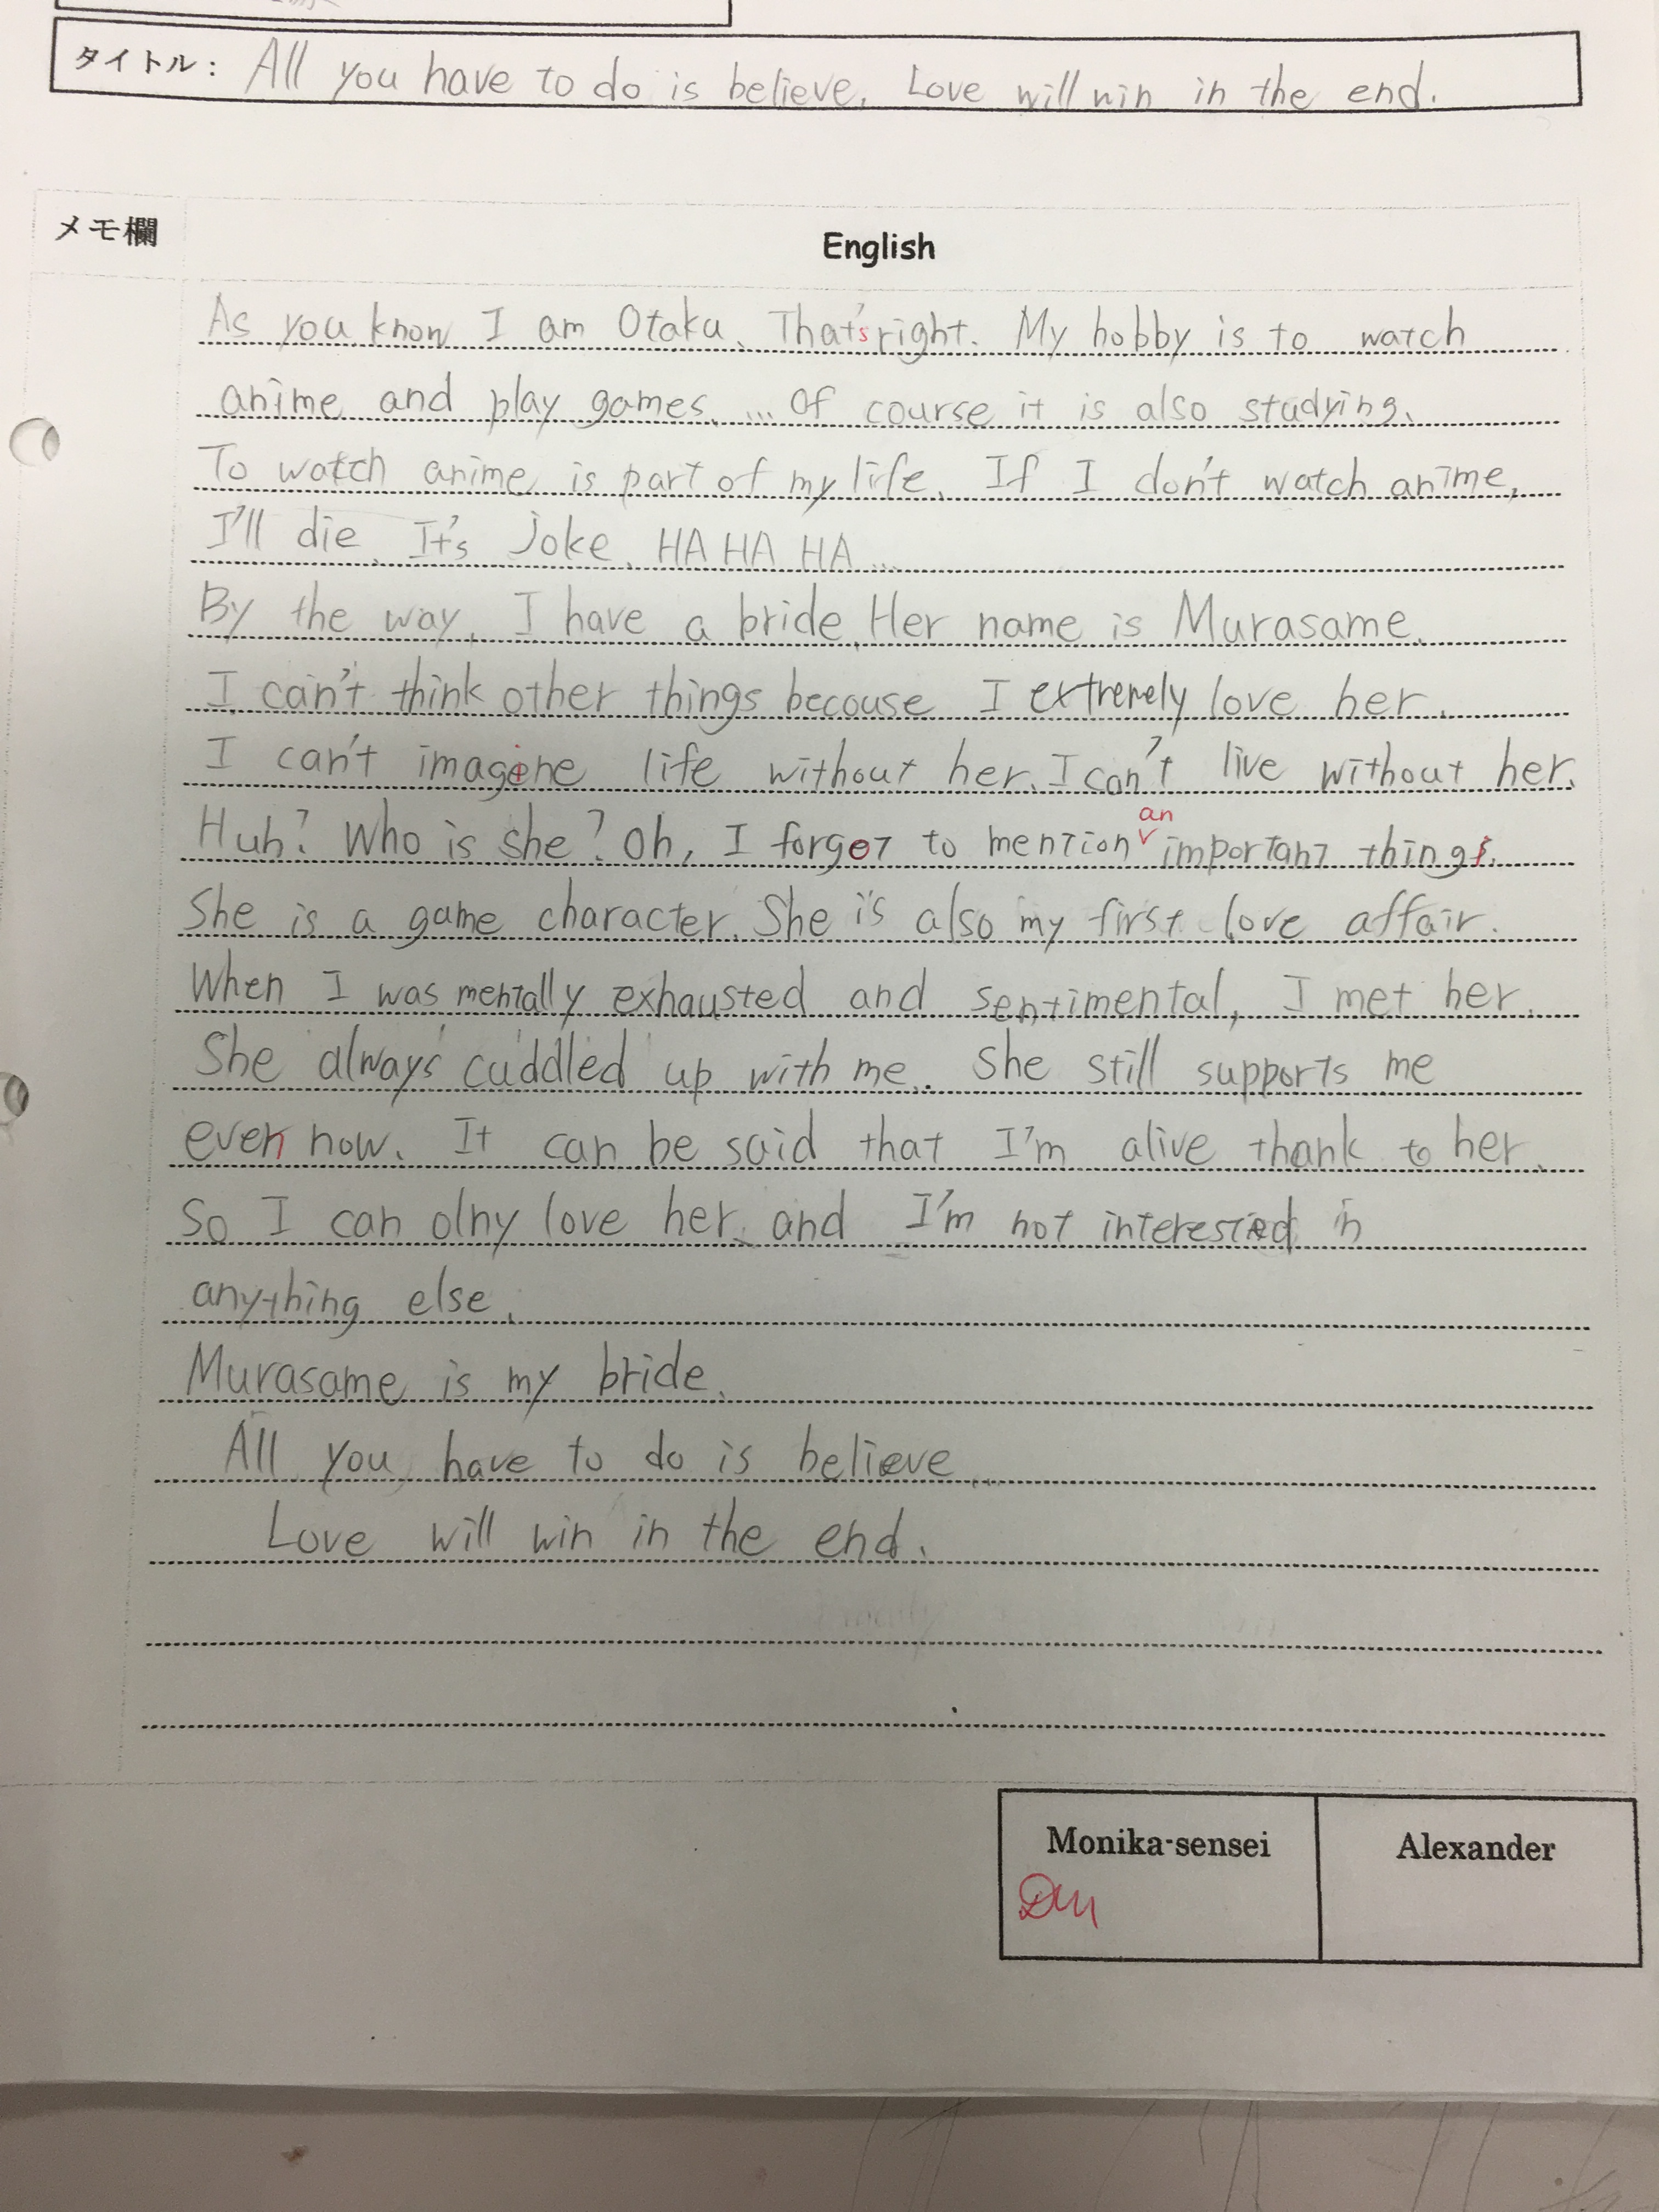 タイトル: All you have to do is believe. Love will win in the end.
メモ欄
English
As you know I am Otaku. That's right. My hobby is to watch
anime and play games. ... Of course it is also studying.
To watch anime is part of my life. If I don't watch anime,
I'll die. It's joke. HA HA HA ...
By the way, I have a bride. Her name is Murasame.
I can't think other things becouse I extremely love her.
I can't imagine life without her. I can't live without her.
Huh? Who is she? Oh, I forgot to mention an important thing.
She is a game character. She is also my first love affair.
When I was mentally exhausted and sentimental, I met her.
She always cuddled up with me. She still supports me
even now. It can be said that I'm alive thank to her.
So I can olny love her. and I'm not interested in
anything else.
Murasame is my bride.
All you have to do is believe...
Love will win in the end.
Monika-sensei
Alexander